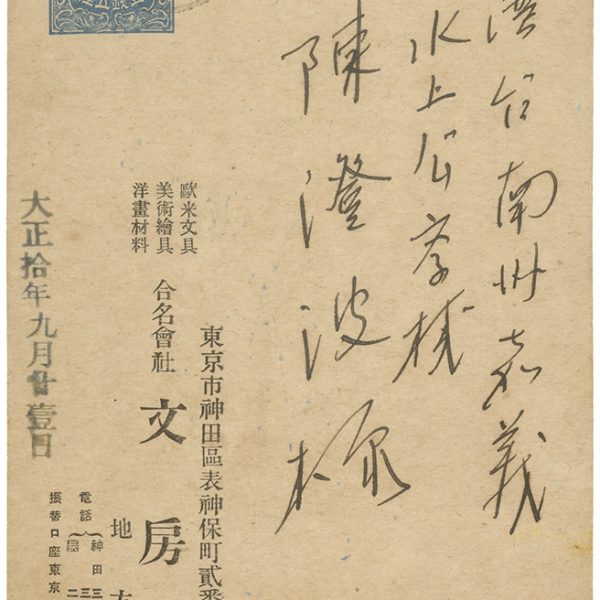 湾台南州嘉義
水上公学校
陳澄波様
東京市神田區表神保町貳番
歐米文具
美術繪具
洋畫材料
合名會社 文房
地
電話 神田 三三
振替口座東京 二
大正拾年九月廿壹日